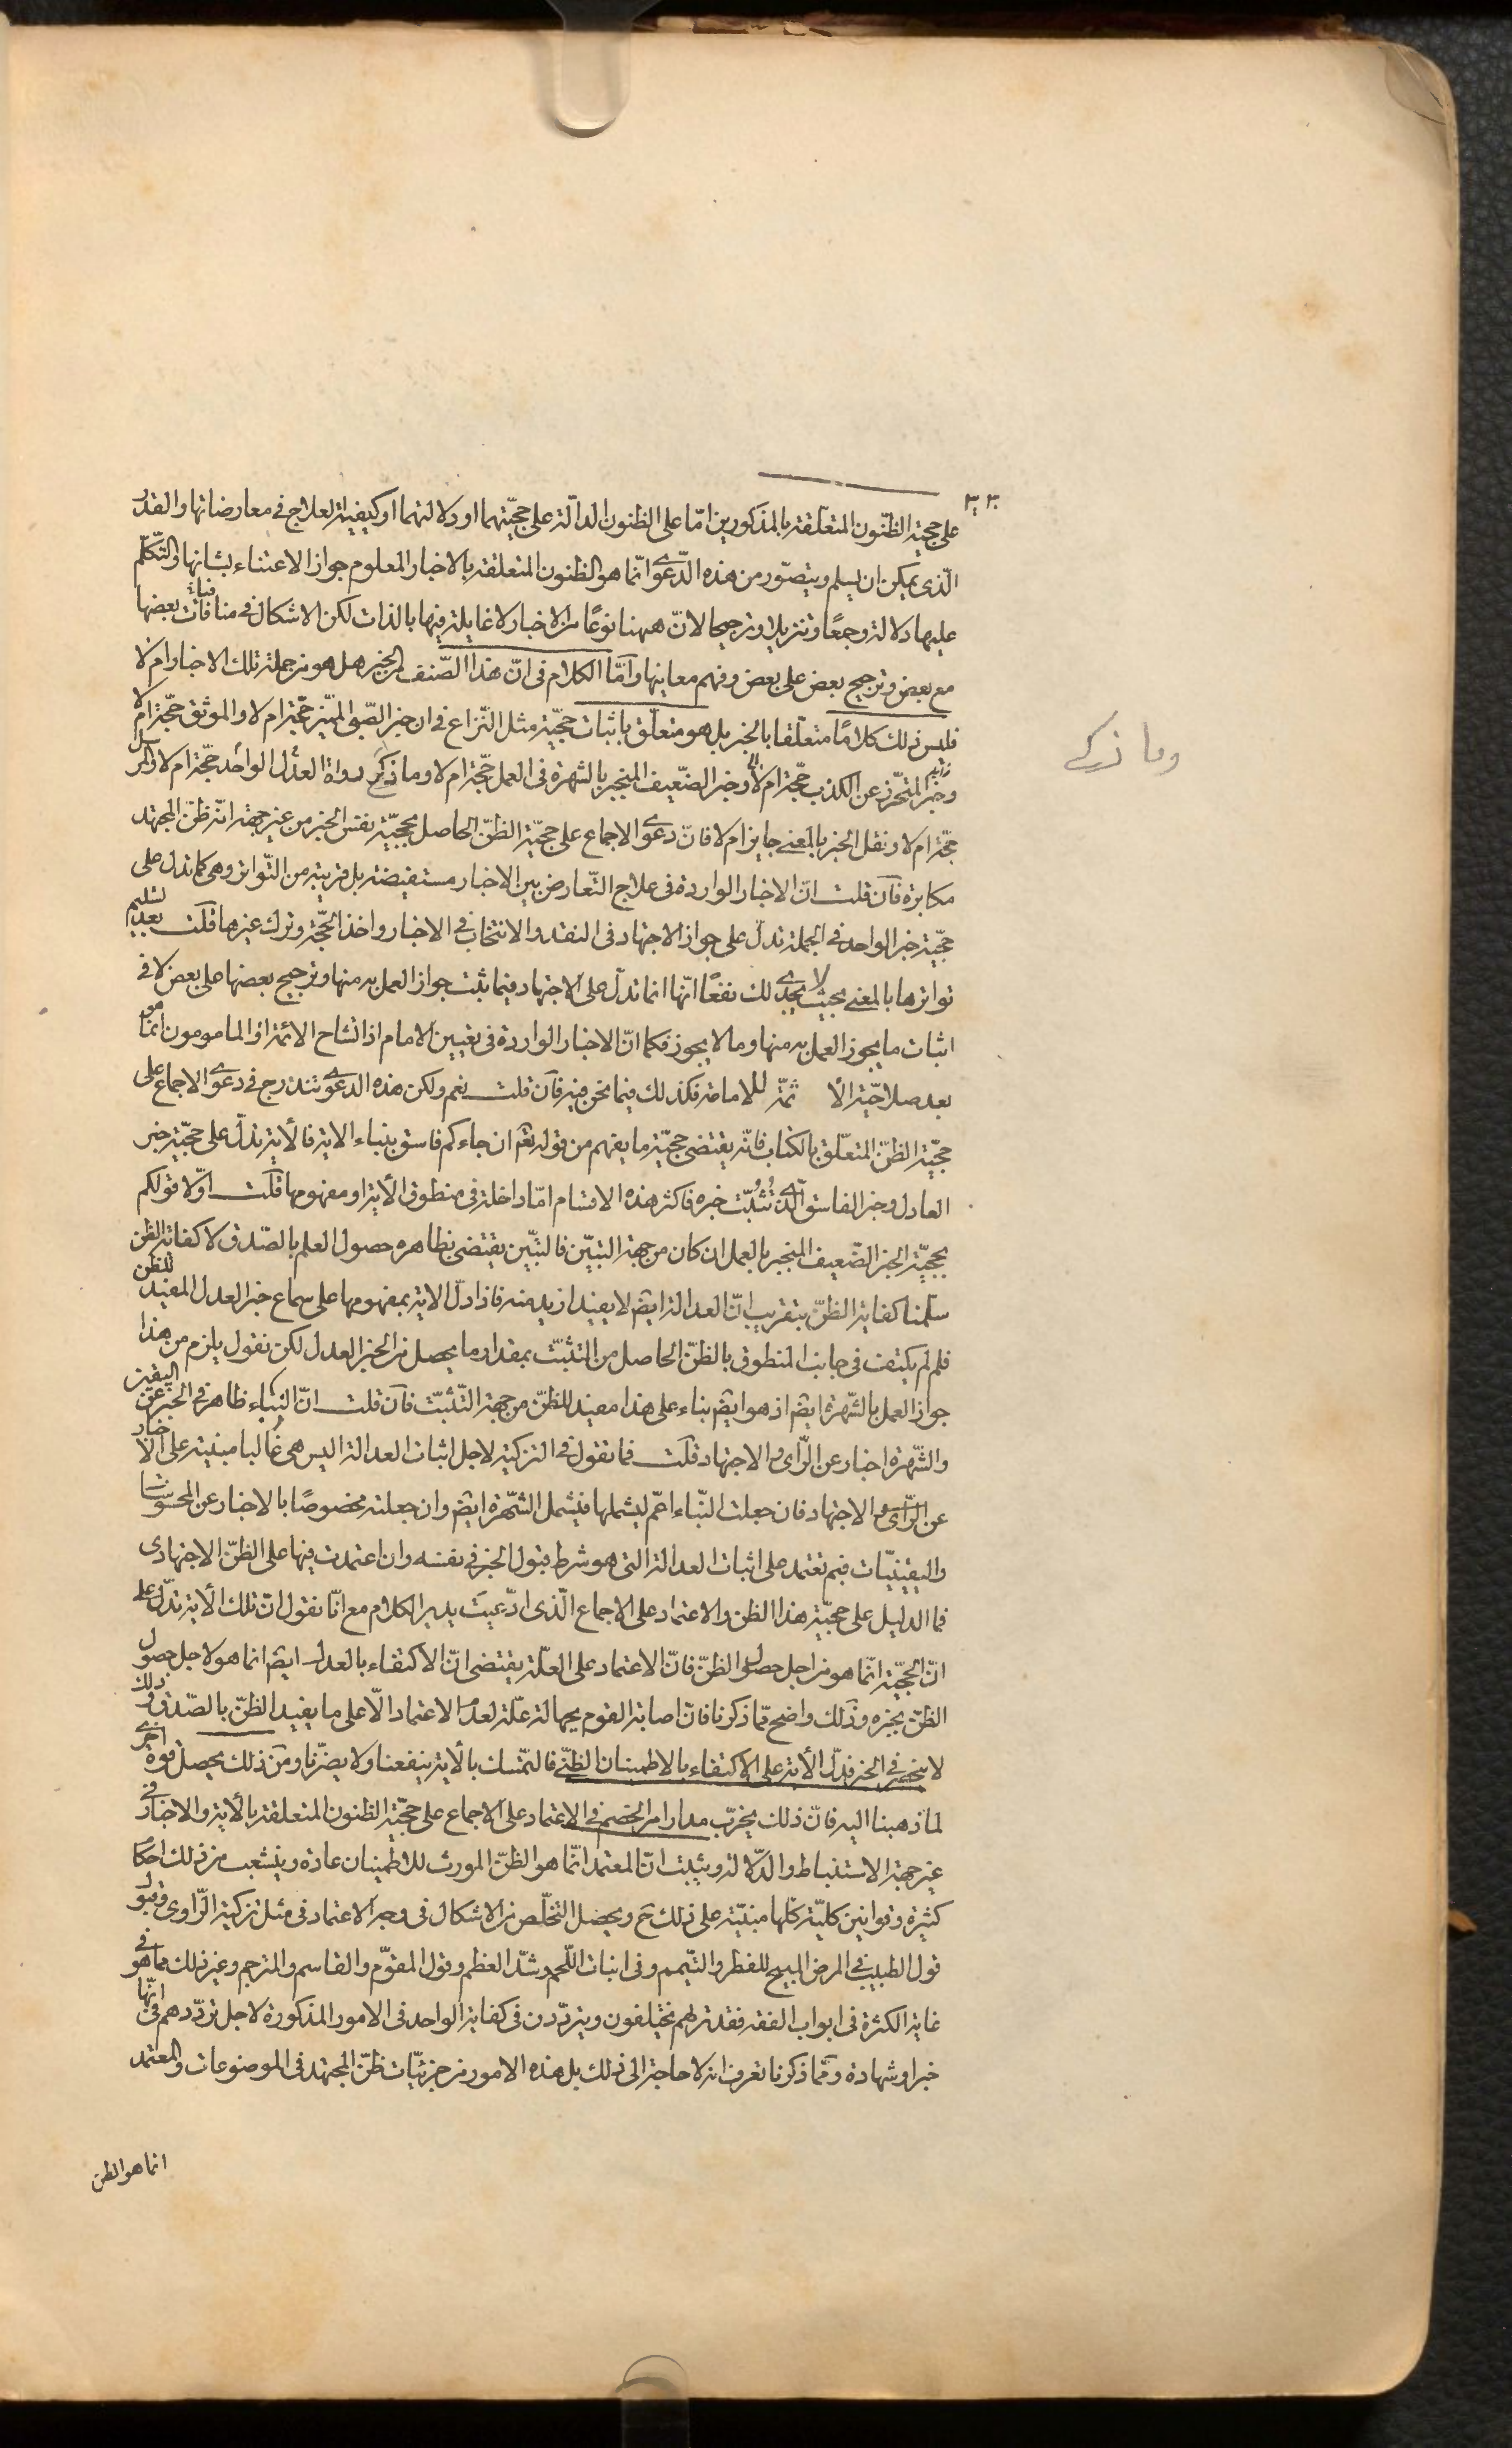 ٣٠٣
على حجية الظنّون المتعلقة بالمذكورين امّا على الظنون الدالّة على حجيّتهما او دلالتهما او كيفية العلاج فى معارضاتها والقدر
الّذى يمكن ان يسلم ويتصوّر من هذه الدّعوى انّما هو الظنون المتعلقة بالاخبار المعلوم جواز الاعتناء بشانها والتّكلّم
عليها دلالة وجمعًا وتنزيلا وترجيحا لانّ ههنا نوعًا من الاخبار لا غايلة فيها بالذات لكن الاشكال فى منافات بعضها
مع بعض وترجيح بعض على بعض وفهم معاينها وامّا الكلام فى انّ هذا الصّنف من الخبر هل هو من جملة تلك الاخبار ام لا
فليس ذلك كلامًا متعلّقا بالخبر بل هو متعلّق باثبات حجيّته مثل النّزاع فى ان خبر الصّبى المميّز حجّة ام لا والموثق حجّة ام لا
وخبر المتحرّز عن الكذب حجّة ام لا وخبر الضّعيف المنجبر بالشهرة فى العمل حجّة ام لا وما ذكر رواة العدل الواحد حجّة ام لا والمرسل
حجّة ام لا ونقل الخبر بالمعنى جايز ام لا فانّ دعوى الاجماع على حجيّة الظنّ الحاصل بحجيّة نفس الخبر من غير جهة انّه ظنّ المجتهد
مكابرة فان قلت انّ الاخبار الواردة فى علاج التّعارض بين الاخبار مستفيضة بل قريبة من التّواتر وهى كما تدل على
حجيّة خبر الواحد فى الجملة تدلّ على جواز الاجتهاد فى النقد والانتخاب فى الاخبار واخذ الحجّة وترك غيرها قلت بعد تسليم
تواترها بالمعنى بحيث لا يجدى لك نفعًا انّها انما تدلّ على الاجتهاد فيما ثبت جواز العمل به منها وترجيح بعضها على بعض لا فى
اثبات ما يجوز العمل به منها وما لا يجوز فكما انّ الاخبار الواردة فى تعيين الامام اذا تشاح الائمة او المامومون انّما هو
بعد صلاحيّة الائمّة للامامة فكذلك فيما نحن فيه فان قلت نعم ولكن هذه الدعوى تندرج فى دعوى الاجماع على
حجيّة الظنّ المتعلّق بالكتاب فانّه يقتضى حجيّة ما يفهم من قوله تعم ان جاءكم فاسق بنباء الاية فالأية تدلّ على حجيّة خبر
العادل وخبر الفاسق الّذى تثبّت خبره فاكثر هذه الاقسام امّا داخلة فى منطوق الأية او مفهومها قلت اوّلا قولكم
بحجيّة الخبر الضّعيف المنجبر بالعمل ان كان من جهة التبيّن فالتبيّن يقتضى بظاهره حصول العلم بالصّدق لا كفاية الظن
سلّمنا كفاية الظنّ بتقريب انّ العدالة ايضم لا يفيد ازيد منه فاذا دلّ الاية بمفهومها على سماع خبر العدل المفيد للظن
فلم لم يكتف فى جانب المنطوق بالظنّ الحاصل من التثبّت بمقدار ما يحصل من الخبر العدل لكن نقول يلزم من هذا
جواز العمل بالشّهرة ايضم اذ هو ايضم بناء على هذا مفيد للظنّ من جهة التّثبّت فان قلت انّ النباء ظاهر فى الخبر عن اليقين
والشّهرة اخبار عن الرّاى والاجتهاد قلت فما تقول فى التزكية لاجل اثبات العدالة اليس هى غالبا مبنية على الاخبار
عن الرّاى والاجتهاد فان جعلت النّباء اعمّ ليشملها فيشمل الشّهرة ايضم وان جعلته مخصوصًا بالاخبار عن المحسوسات
واليقينيّات فبم تعتمد على اثبات العدالة التى هو شرط قبول الخبر فى نفسه وان اعتمدت فيها على الظنّ الاجتهادى
فما الدليل على حجيّة هذا الظن والاعتماد على الاجماع الّذى ادّعيت يدير الكلام مع انّا نقول انّ تلك الأية تدلّ على
انّ الحجيّة انّما هو من اجل حصول الظنّ فانّ الاعتماد على العلّة يقتضى انّ الاكتفاء بالعدل ايضم انما هو لاجل حصول
الظنّ بخبره وذلك واضح ممّا ذكرنا فانّ اصابة القوم بجهالة علّة لعدم الاعتماد الّا على ما يفيد الظنّ بالصّدق وذلك
لا ينحصر فى الخبر فدلّ الأية على الاكتفاء بالاطمينان الظنّى فالتمّسك بالأية ينفعنا ولا يضرّنا ومن ذلك يحصل قوة اخرى
لما ذهبنا اليه فانّ ذلك يخرّب مدار امر الخصم فى الاعتماد على الاجماع على حجيّة الظنون المتعلقة بالأية والاخبار فى
غير جهة الاستنباط والدّلالة ويثبت انّ المعتمد انّما هو الظنّ المورث للاطمينان عادة وينشعب من ذلك احكام
كثيرة وقوانين كليّة كلّها مبنيّة على ذلك ح ويحصل التخلّص من الاشكال فى وجه الاعتماد فى مثل تزكية الرّاوى وقبول
قول الطبيب فى المرض المبيح للفطر والتّيمم وفى انبات اللّحم وشدّ العظم وقول المقوّم والقاسم والمترجم وغير ذلك مما هو فى
غاية الكثرة فى ابواب الفقه فقد تريهم يختلفون ويتردّدون فى كفاية الواحد فى الامور المذكورة لاجل تردّدهم فى انّها
خبر او شهادة وممّا ذكرنا تعرف انه لا حاجة الى ذلك بل هذه الامور من جزئيّات ظنّ المجتهد فى الموضوعات والمعتمد
انما هو الظن
وما ذكى